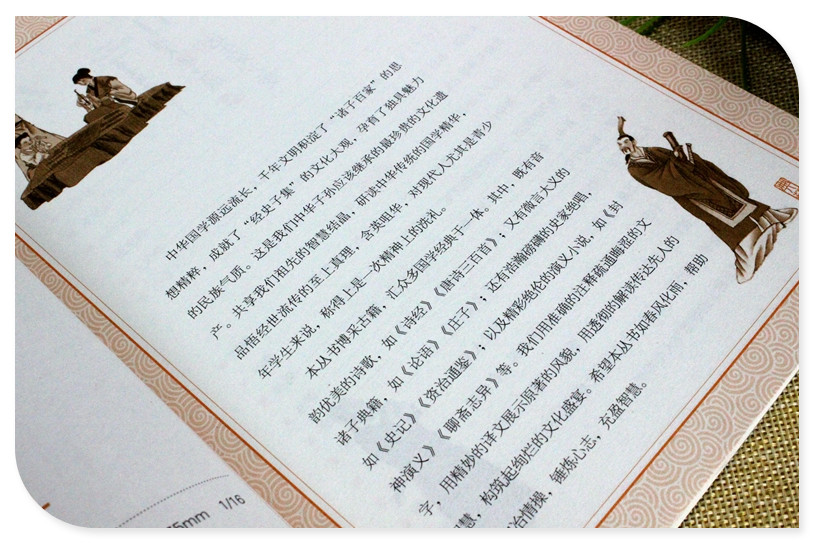 中华国学源远流长，千年文明积淀了“诸子百家”的思
想精粹，成就了“经史子集”的文化大观，孕育了独具魅力
的民族气质。这是我们中华子孙应该继承的最珍贵的文化遗
产。共享我们祖先的智慧结晶，研读中华传统的国学精华，
品悟经世流传的至上真理，含英咀华，对现代人尤其是青少
年学生来说，称得上是一次精神上的洗礼。
本丛书博采古籍，汇众多国学经典于一体。其中，既有音
韵优美的诗歌，如《诗经》《唐诗三百首》；又有微言大义的
诸子典籍，如《论语》《庄子》；还有浩瀚磅礴的史家绝唱，
如《史记》《资治通鉴》；以及精彩绝伦的演义小说，如《封
神演义》《聊斋志异》等。我们用准确的注释疏通晦涩的文
字，用精妙的译文展示原著的风貌，用透彻的解读传达先人的
智慧，构筑起绚烂的文化盛宴。希望本丛书如春风化雨，帮助
冶情操，锤炼心志，充盈智慧。
5mm 1/16